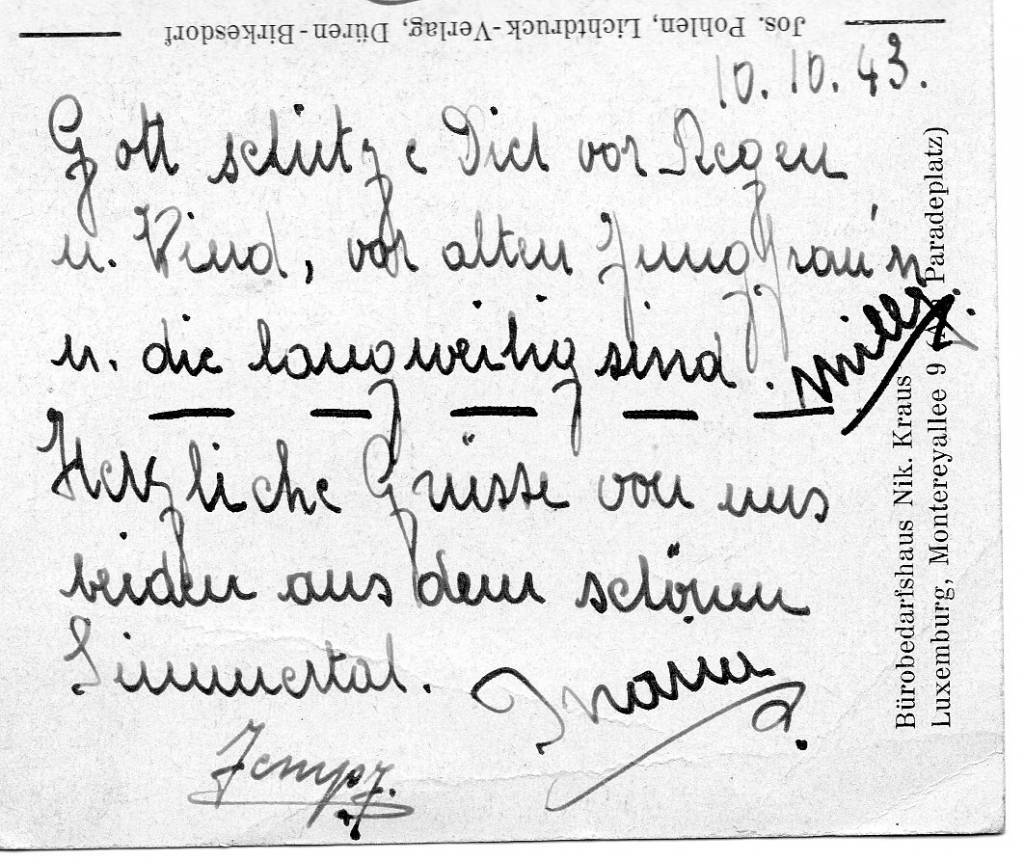 Jos. Pohlen, Lichtdruck-Verlag, Düren-Birkesdorf
10. 10. 43.
Gott schütze Dich vor Regen
u. Wind, vor alten Jungfrau'n
u. die langweilig sind. Milly.
Herzliche Grüsse von uns
beiden aus dem schönen
Simmertal.
Jempy.
Bürobedarfshaus Nik. Kraus
Luxemburg, Montereyallee 9 Paradeplatz)